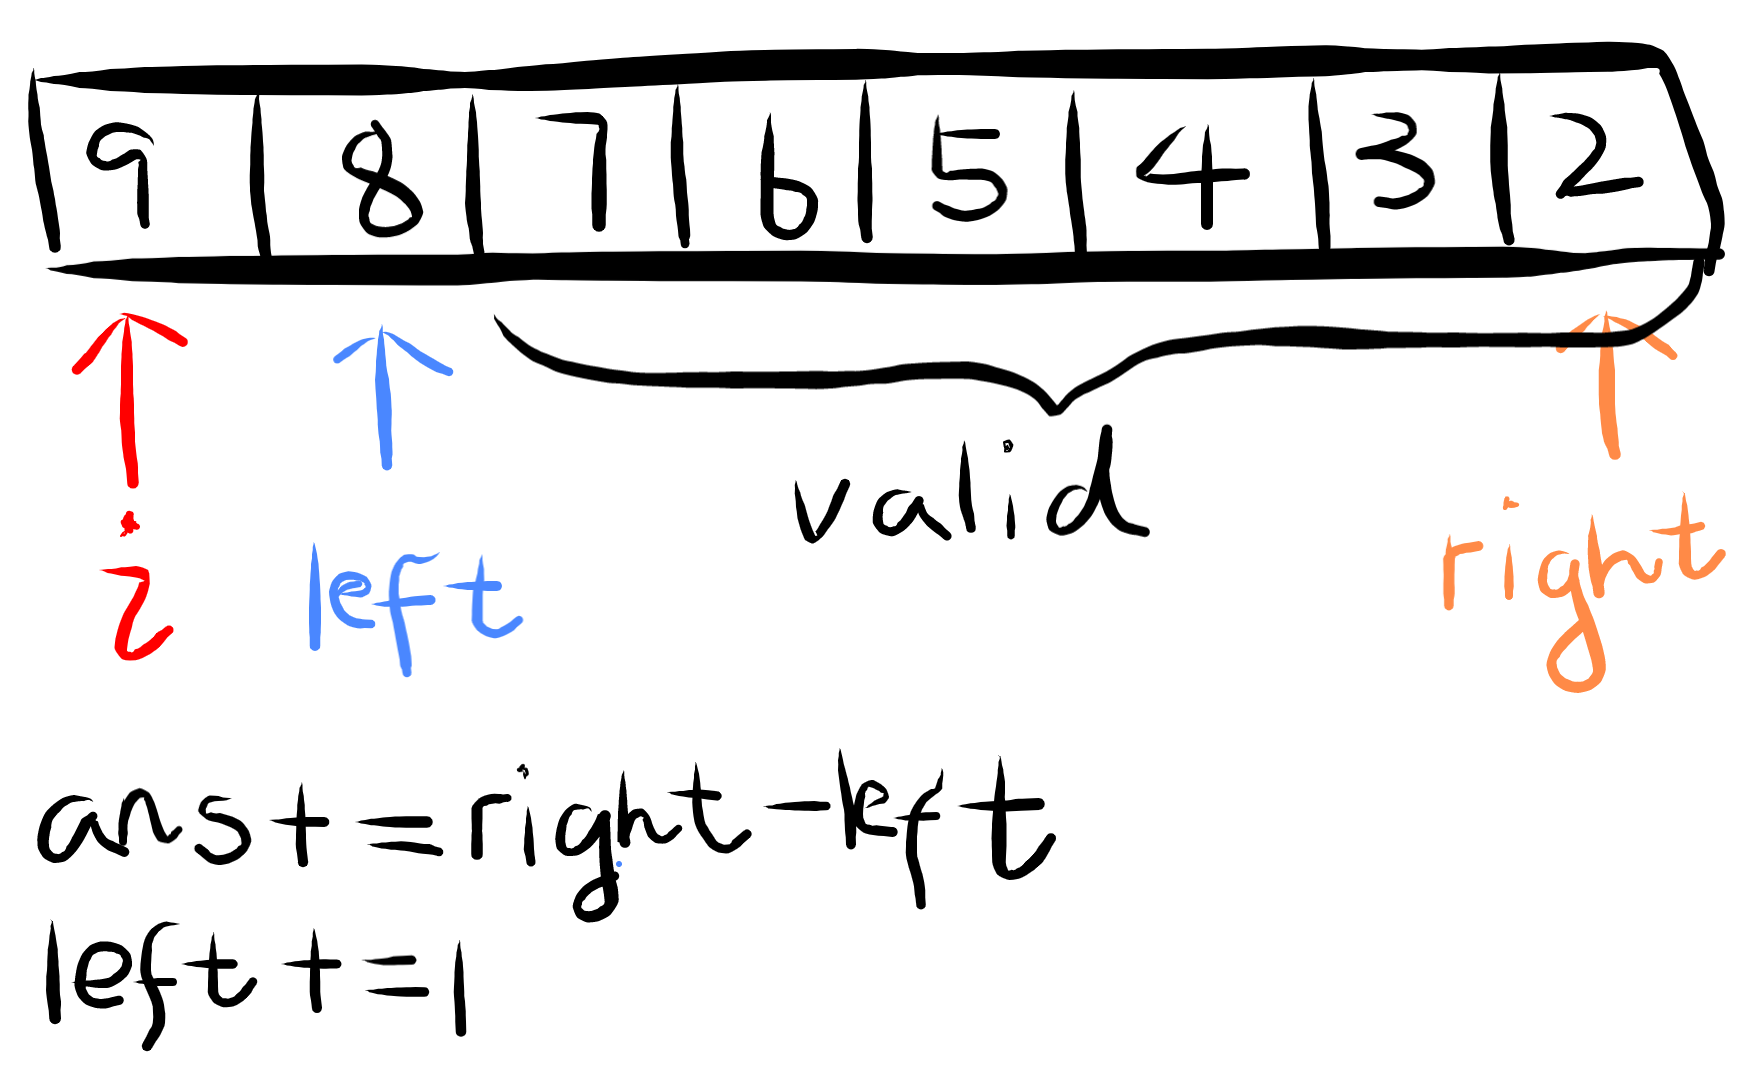 9 8 7 6 5 4 3 2
i left valid right
ans += right - left
left += 1